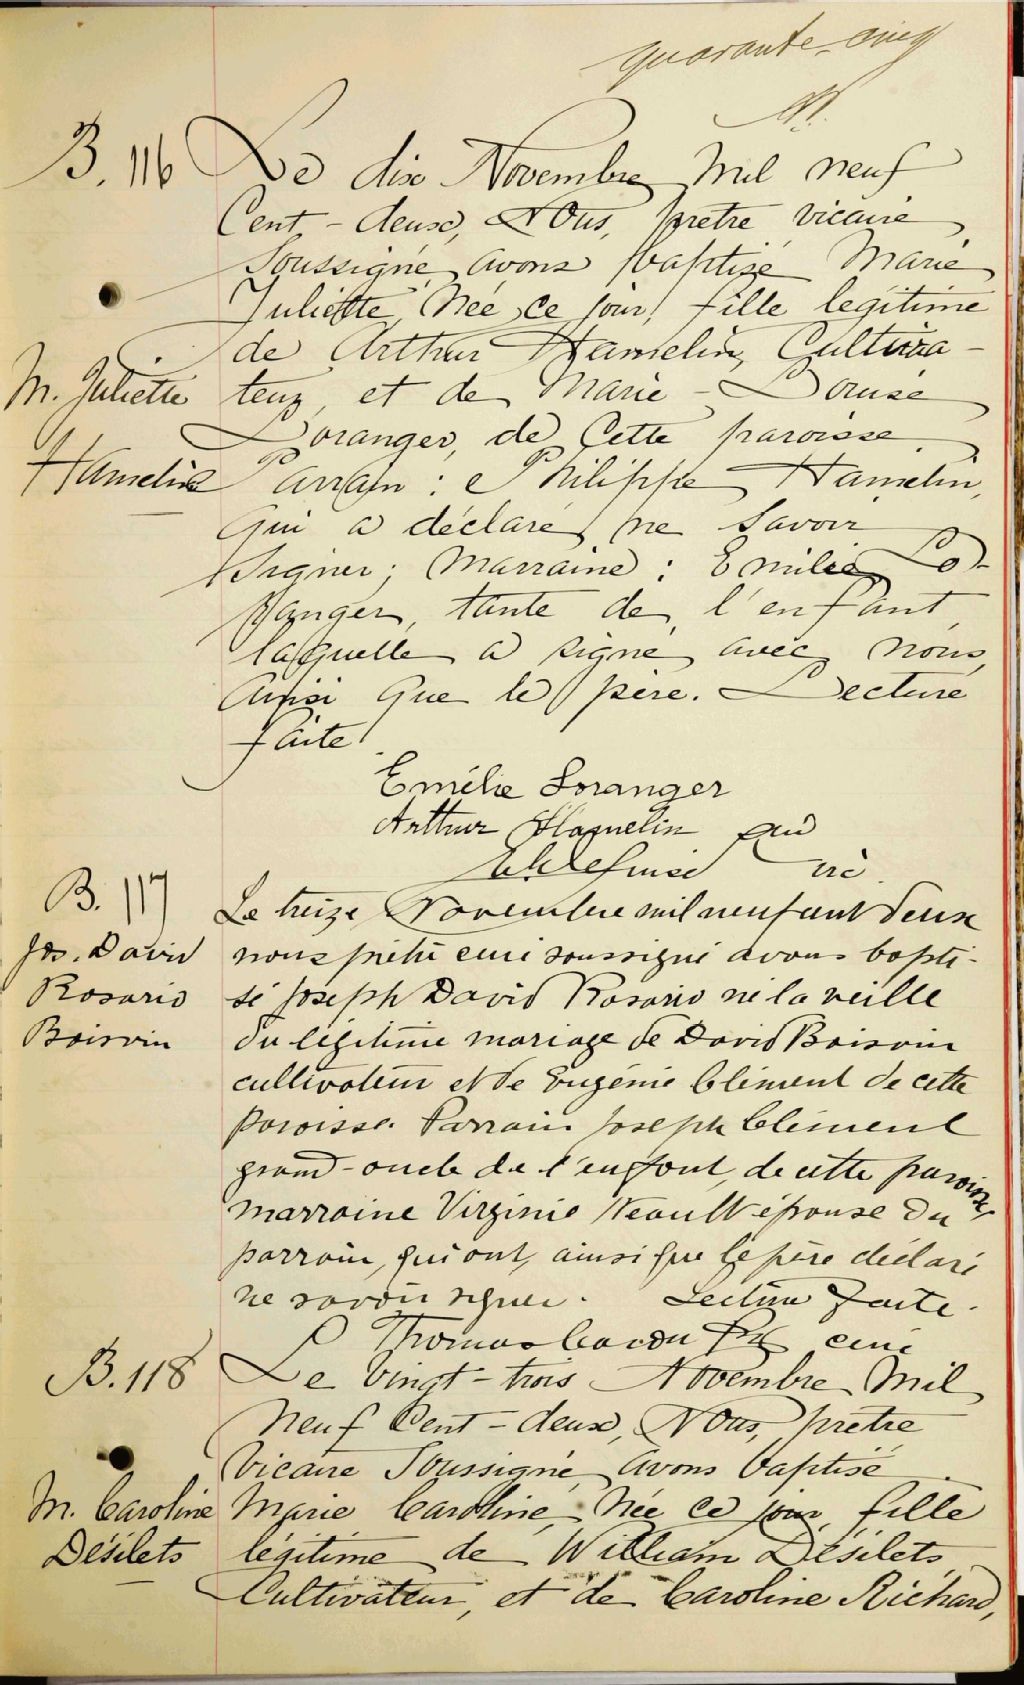 quarante-cinq
B. 116
Le dix Novembre mil neuf
Cent-deux, Nous, prêtre vicaire
Soussigné, avons baptisé Marie
Juliette, Née ce jour, fille légitime
M. Juliette
Hamelin
de Arthur Hamelin, Cultiva-
teur, et de Marie-Louise
Loranger, de Cette paroisse.
Parrain : Philippe Hamelin,
Qui a déclaré ne Savoir
Signer; Marraine : Emilie Lo-
ranger, tante de l'enfant,
laquelle a signé avec nous,
Ainsi Que le père. Lecture
faite.
Emélie Loranger
Arthur Hamelin
vic
B. 117
Jos. David
Rosario
Boisvin
Le treize Novembre mil neuf cent deux
nous prêtre curé soussigné avons bapti-
sé Joseph David Rosario né la veille
du légitime mariage de David Boisvin
cultivateur et de Eugénie Clément de cette
paroisse. Parrain Joseph Clément
grand-oncle de l'enfant, de cette paroisse,
marraine Virginie Neault épouse du
parrain, qui ont, ainsi que le père déclaré
ne savoir signer. Lecture faite.
Thomas Caron Ptre curé
B. 118
Le Vingt-trois Novembre Mil
Neuf Cent-deux, Nous, prêtre
Vicaire Soussigné, avons baptisé
M. Caroline
Désilets
Marie Caroline, Née Ce jour, fille
légitime de William Désilets,
Cultivateur, et de Caroline Richard,